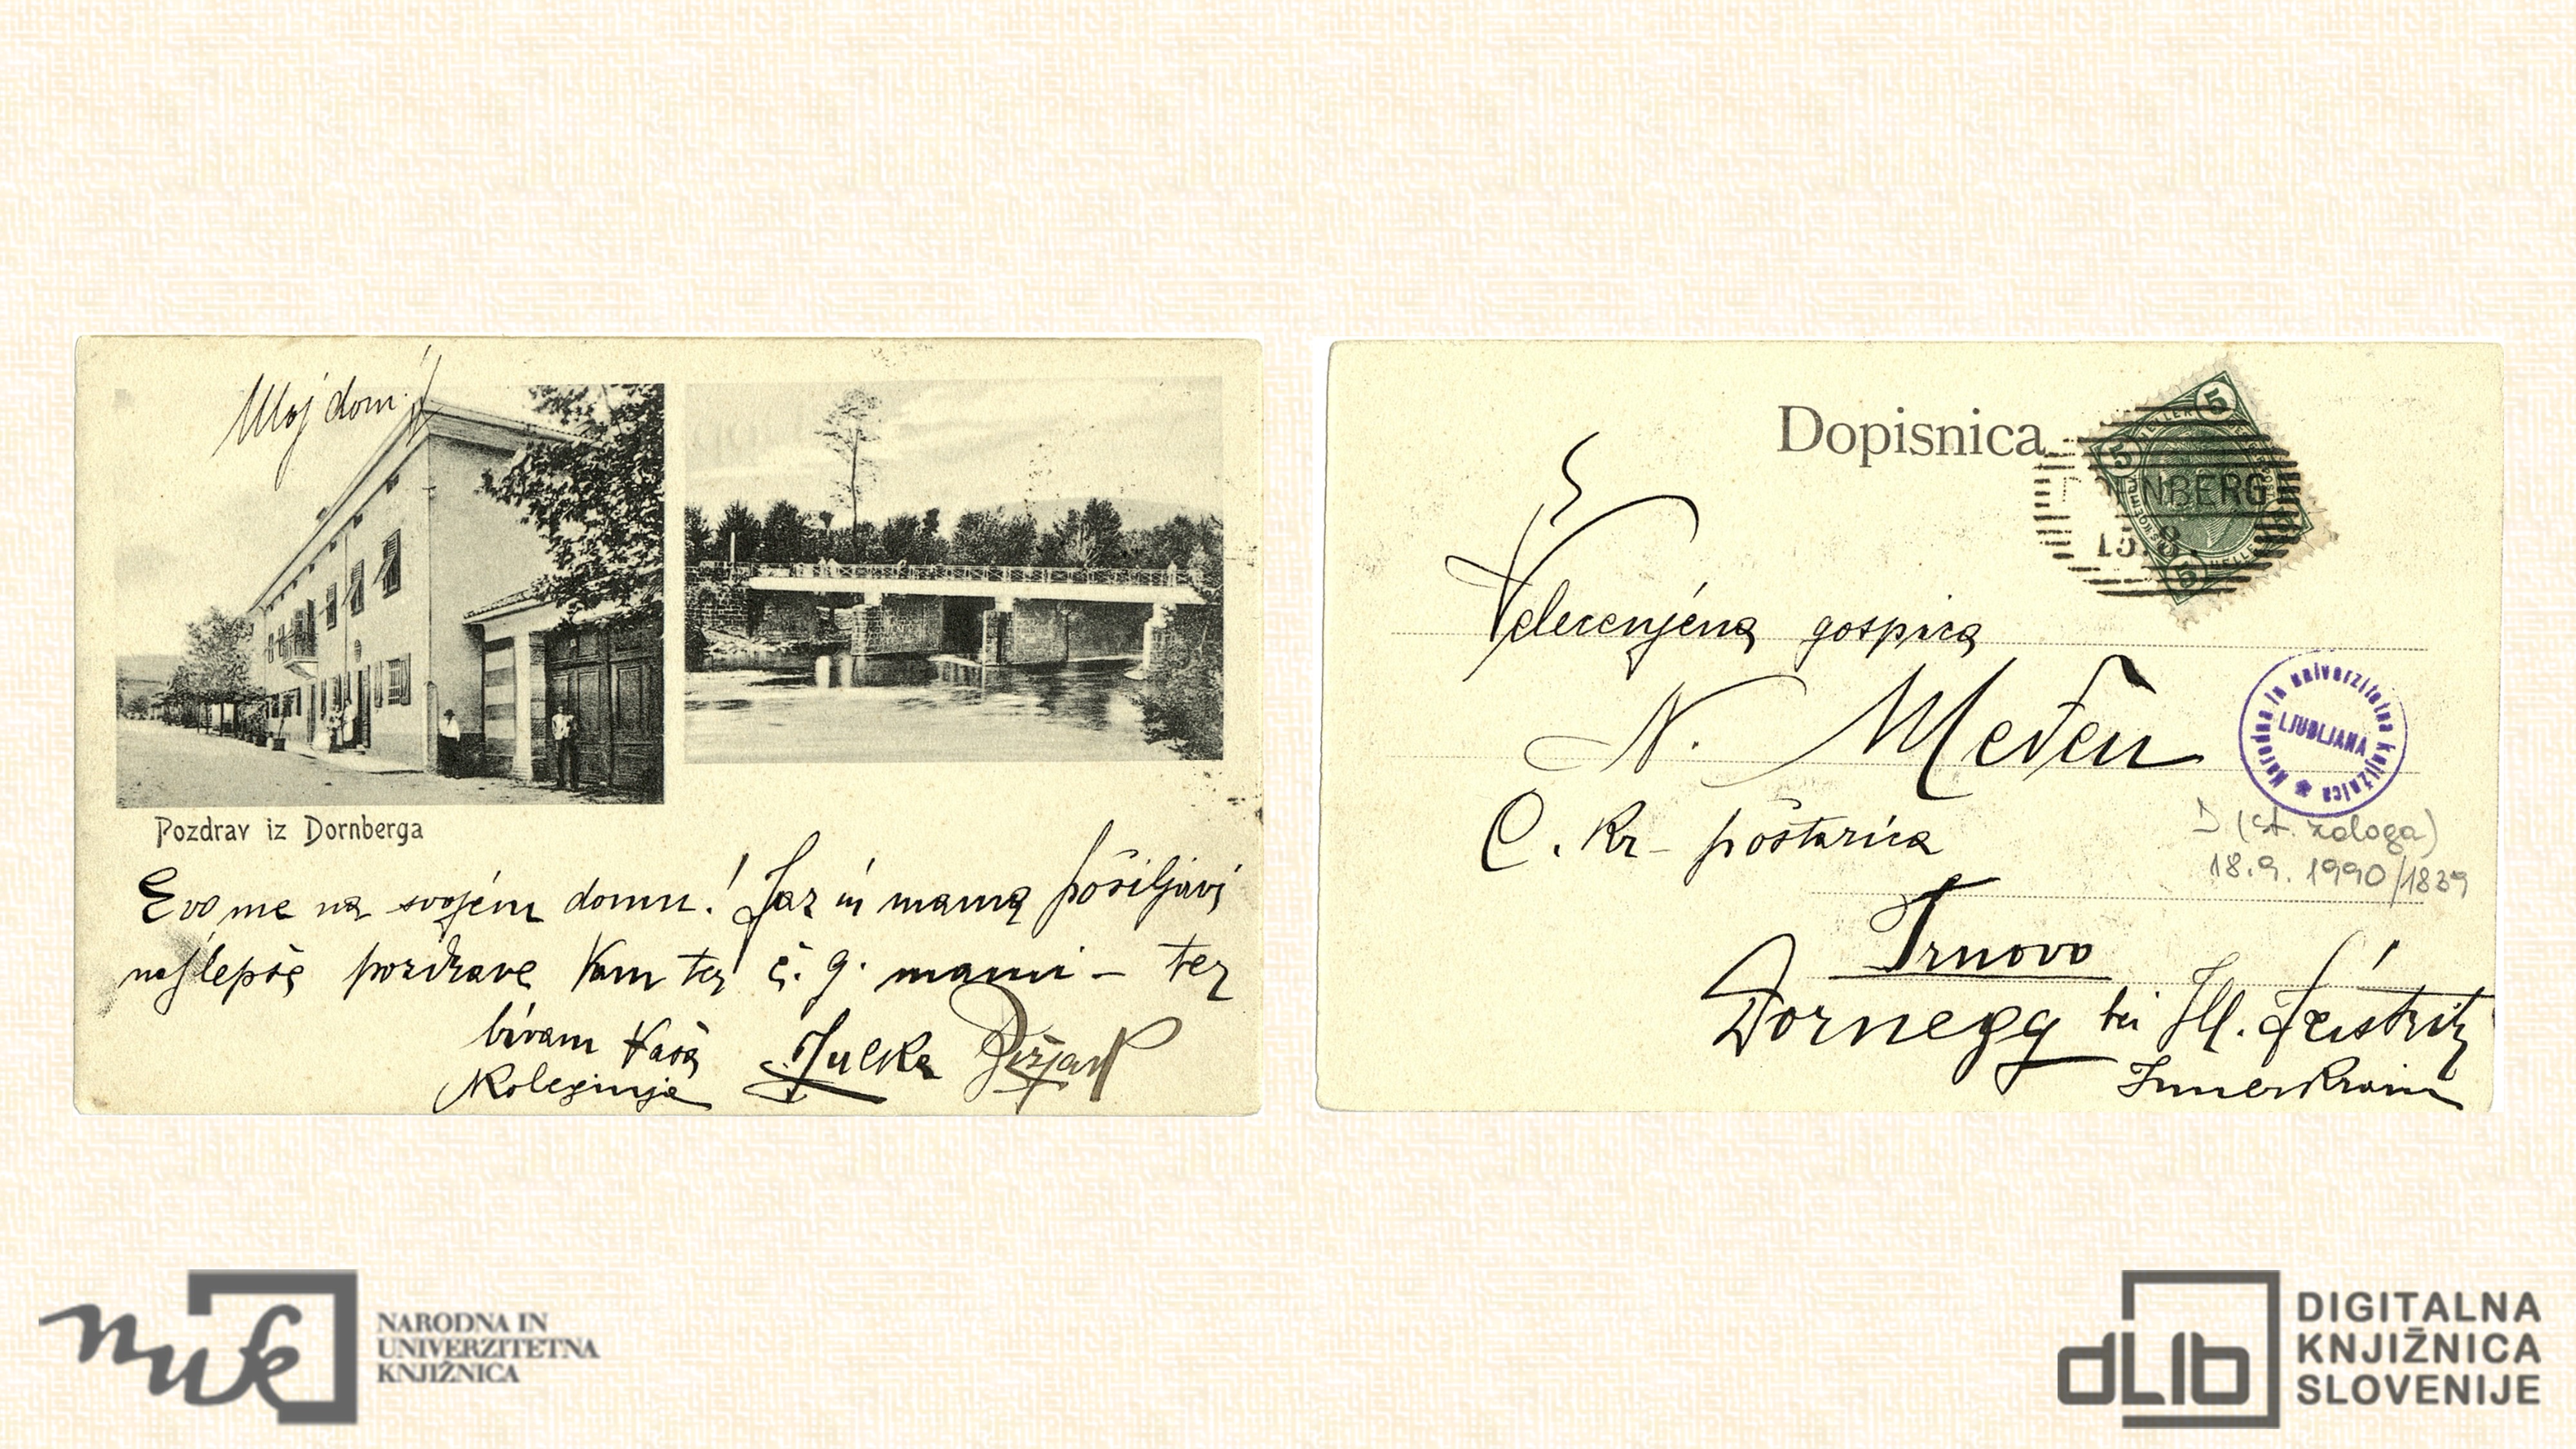 Moj dom!
Pozdrav iz Dornberga
Evo me na svojem domu! Jaz in mama pošiljavi
najlepše pozdrave Vam ter č. g. mami – ter
bivam Vaša
Koleginja Julka
Dopisnica
5 5
NBERG
15.8.
5
Velecenjena gospica
N. Meden
C. kr. poštarica
Trnovo
Dornegg bei Ill. Feistritz
Innerkrain
Narodna in univerzitetna knjižnica
LJUBLJANA
D (st. zaloga)
18.9.1990/1839
nuk
NARODNA IN
UNIVERZITETNA
KNJIŽNICA
dLib
DIGITALNA
KNJIŽNICA
SLOVENIJE